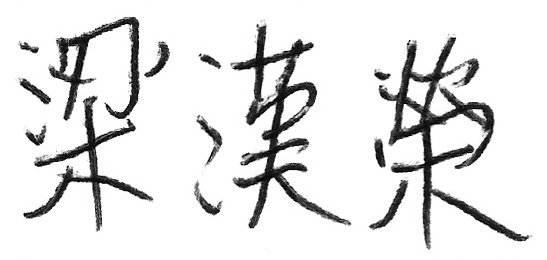 梁漢榮